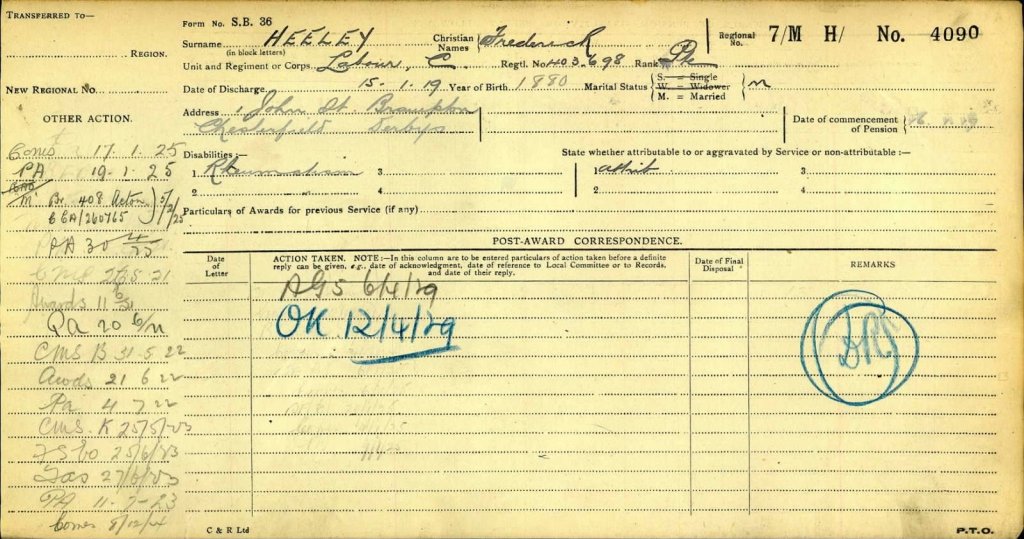 TRANSFERRED TO—
REGION.
NEW REGIONAL No.
OTHER ACTION.
Coms 17.1.25
PA 19.1.25
M. Br. 408 Acton
CCA/260765 } 5/2/25
PA 30 4/25
CMB 26 5 21
Awards 11 6/21
Pa 20 6/21
CMS B 31.5.22
Awds 21 6 22
Pa 4 7 22
CMS. K 25/5/23
25/6/23
27/6/23
PA 11-7-23
Comes 8/12/24
Form No. S.B. 36
Surname (in block letters) HEELEY
Christian Names } Frederick
Regional No. 7/M H/ No. 4090
Unit and Regiment or Corps. Labour, C. Regtl. No. 403698 Rank Pte
Date of Discharge 15.1.19 Year of Birth 1880 Marital Status { S. = Single W. = Widower M. = Married } M
Address 1 John St. Brampton
Chesterfield Derbys
Date of commencement of Pension }
Disabilities :—
1. Rheumatism 3.
2. 4.
State whether attributable to or aggravated by Service or non-attributable :—
1. attrib 3.
2. 4.
Particulars of Awards for previous Service (if any)
POST-AWARD CORRESPONDENCE.
Date of Letter
ACTION TAKEN. NOTE :—In this column are to be entered particulars of action taken before a definite reply can be given, e.g., date of acknowledgment, date of reference to Local Committee or to Records, and date of their reply.
Date of Final Disposal
REMARKS
AG5 6/4/29
OK 12/4/29
C & R Ltd
P.T.O.